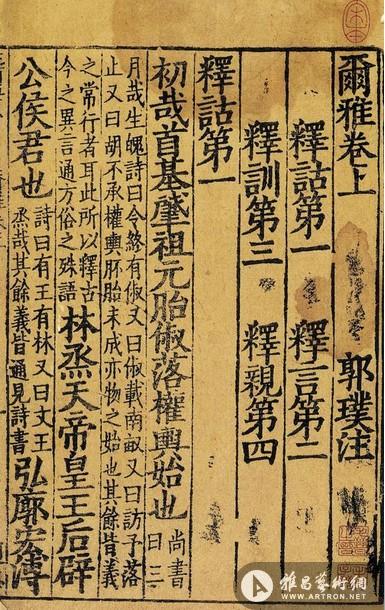 爾雅卷上 郭璞注
釋詁第一 釋言第二
釋訓第三 釋親第四
釋詁第一
初哉首基肇祖元胎俶落權輿始也 尚書曰三
月哉生魄詩曰令終有俶又曰俶載南畝又曰訪予落
止又曰胡不承權輿胚胎未成亦物之始也其餘皆義
之常行者耳此所以釋古今之異言通方俗之殊語 林烝天帝皇王后辟
公侯君也 詩曰有王有林又曰文王烝哉其餘義皆通見詩書 弘廓宏溥
雅昌藝術網
WWW.ARTRON.NET